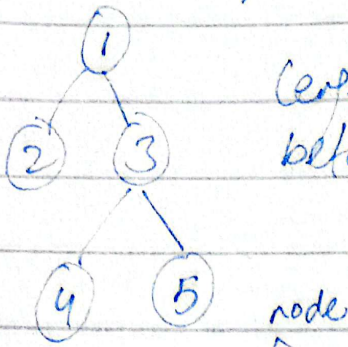 1
2 3
4 5
node